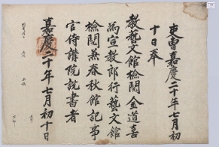 吏曹嘉慶二十年七月初
十日奉
教藝文館檢閱金道喜
爲宣敎郞行藝文館
檢閱兼春秋館記事
官侍講院說書者
嘉慶二十年七月初十日